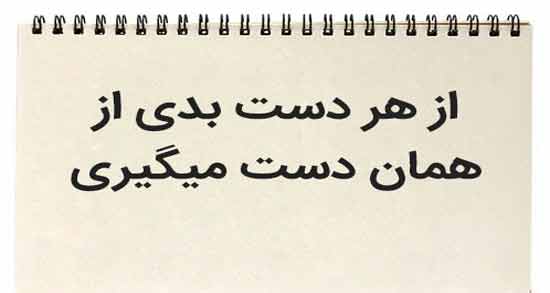 از هر دست بدی از
همان دست میگیری